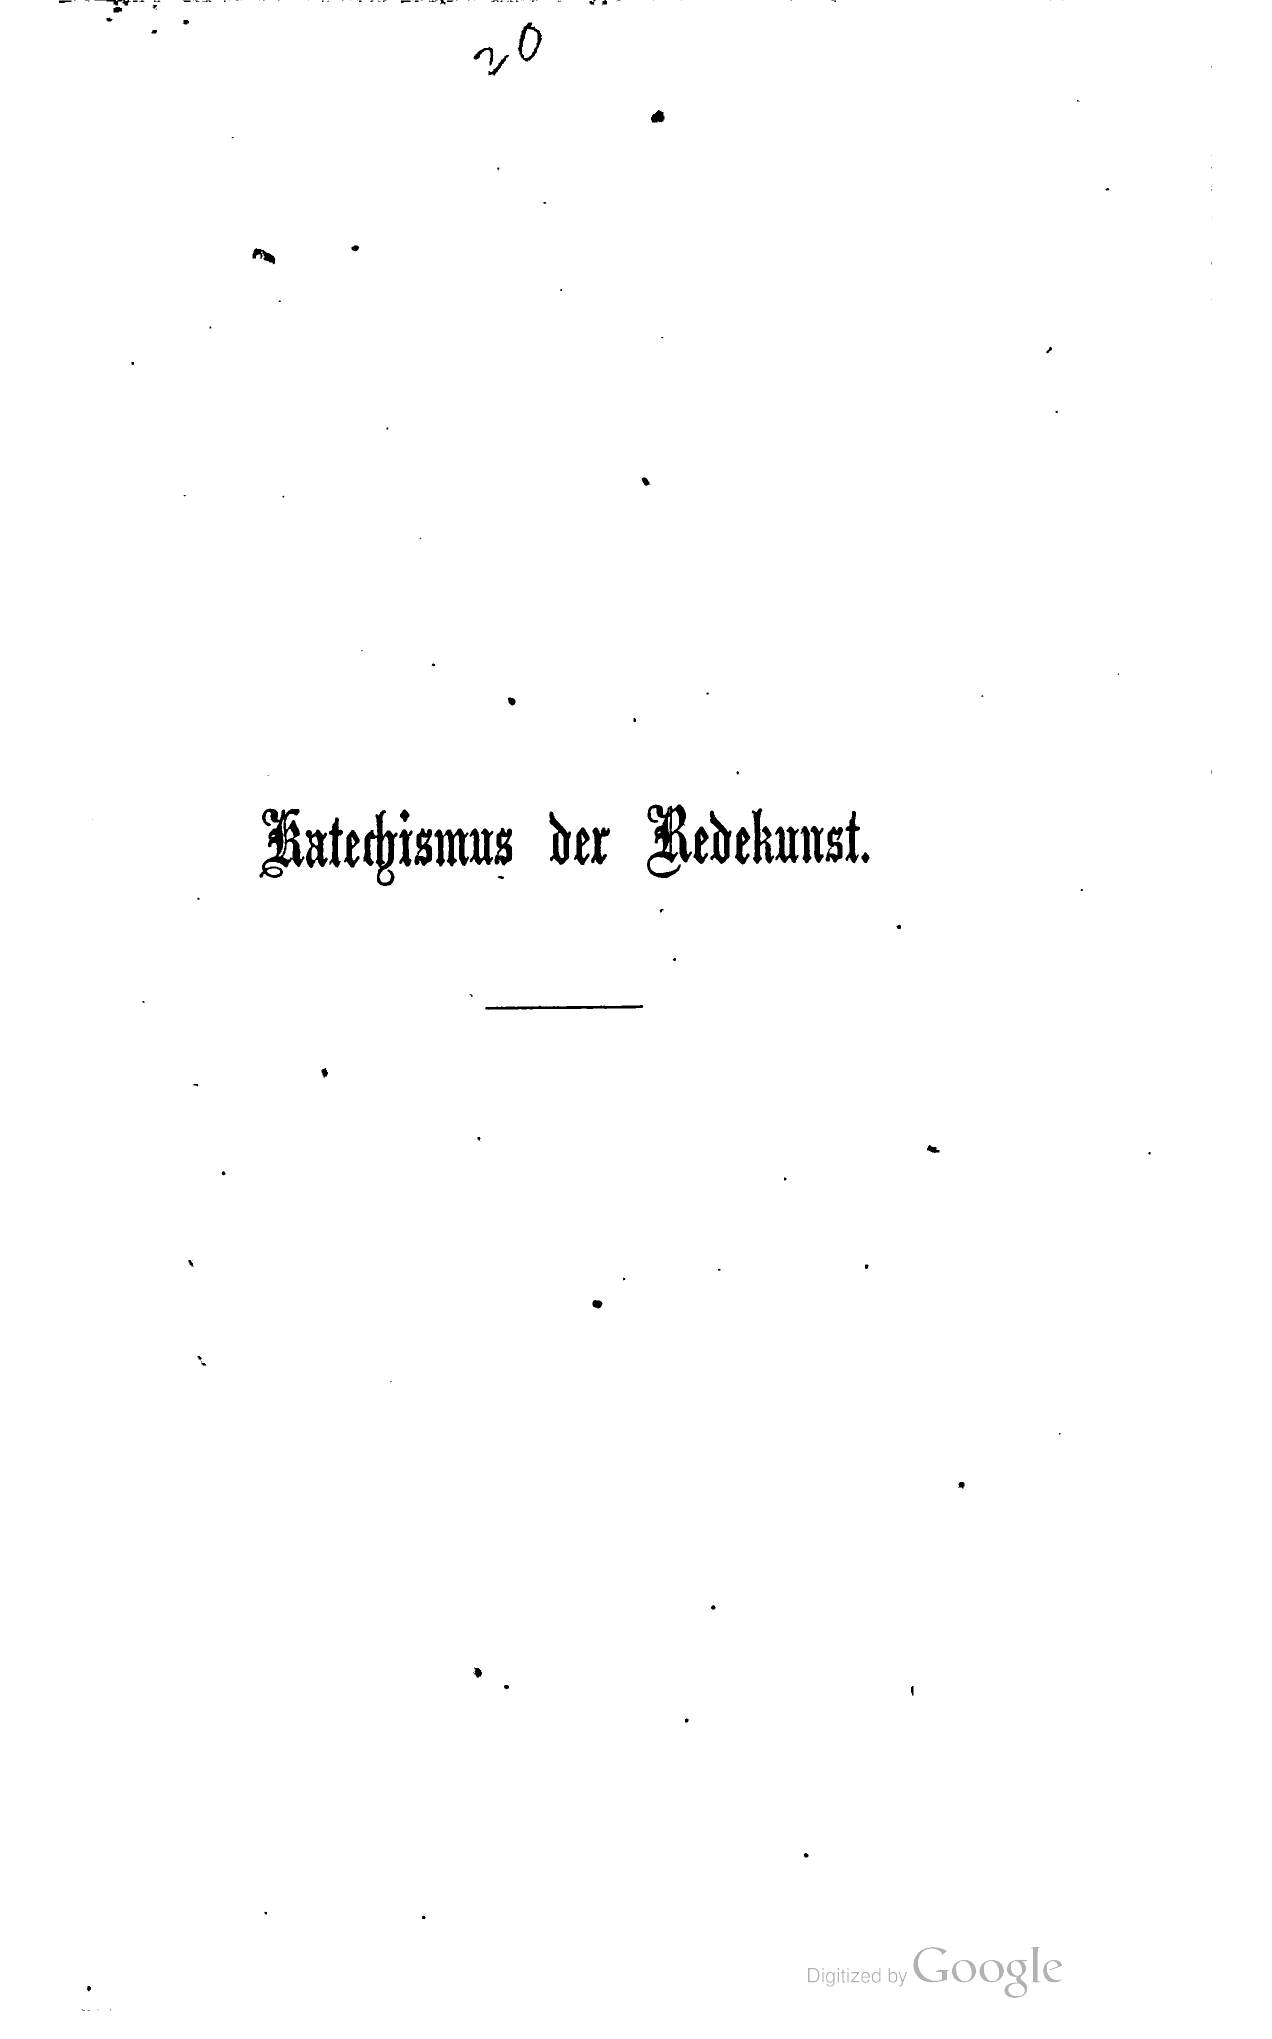 20
Katechismus der Redekunst.
Digitized by Google